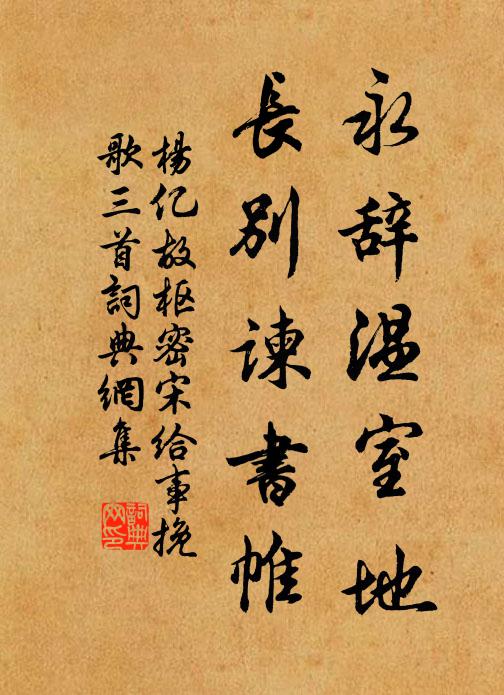 永辞温室地
長別諫書帷
楊亿故枢密宋给事挽
歌三首詞典網集
詞典网印